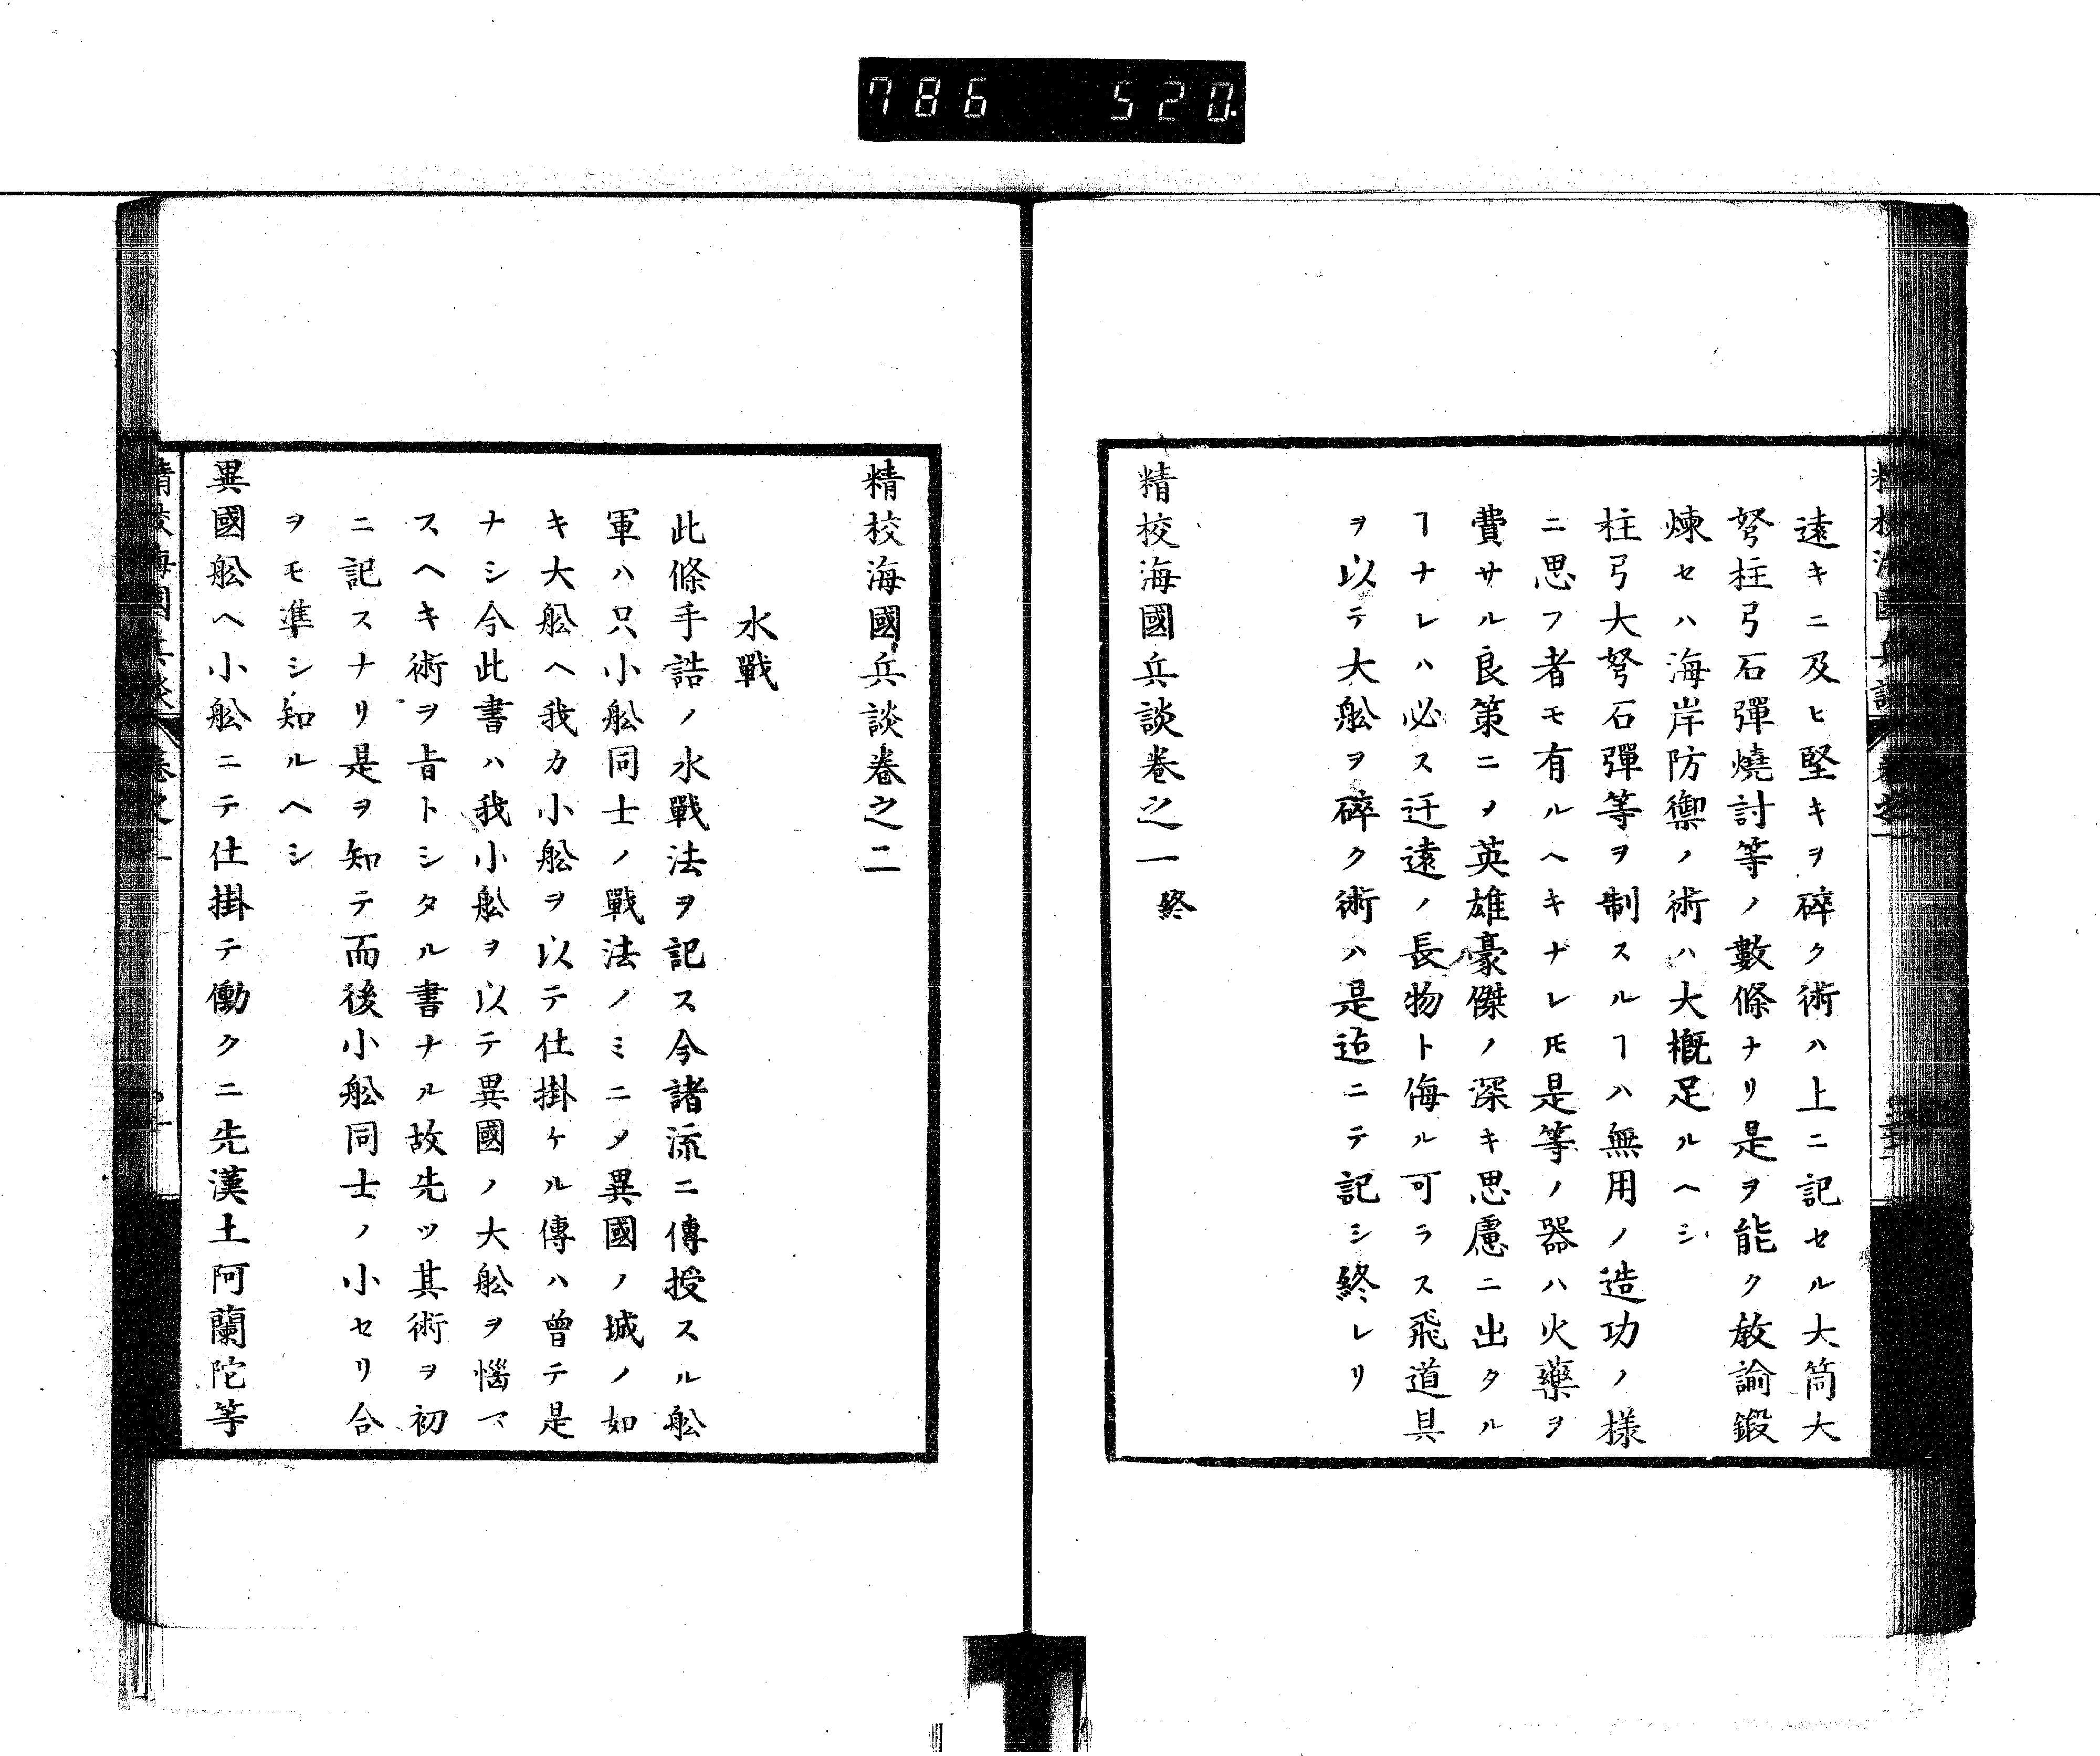 786 520.
遠キニ及ヒ堅キヲ碎ク術ハ上ニ記セル大筒大
弩柱弓石彈燒討等ノ數條ナリ是ヲ能ク教諭鍛
煉セハ海岸防禦ノ術ハ大概足ルヘシ
柱弓大弩石彈等ヲ制スルヿハ無用ノ造功ノ樣
ニ思フ者モ有ルヘキナレ𪜈是等ノ器ハ火藥ヲ
費サル良策ニヲ英雄豪傑ノ深キ思慮ニ出タル
ヿナレハ必ス迂遠ノ長物ト侮ル可ラス飛道具
ヲ以テ大舩ヲ碎ク術ハ是迠ニテ記シ終レリ
精校海國兵談卷之一 終
精校海國兵談卷之二
水戰
此條手誥ノ水戰法ヲ記ス今諸流ニ傳授スル舩
軍ハ只小舩同士ノ戰法ノミニメ異國ノ城ノ如
キ大舩ヘ我カ小舩ヲ以テ仕掛ケル傳ハ曽テ是
ナシ今此書ハ我小舩ヲ以テ異國ノ大舩ヲ惱マ
スヘキ術ヲ旨トシタル書ナル故先ツ其術ヲ初
ニ記スナリ是ヲ知テ而後小舩同士ノ小セリ合
ヲモ準シ知ルヘシ
異國舩ヘ小舩ニテ仕掛テ働クニ先漢土阿蘭陀等